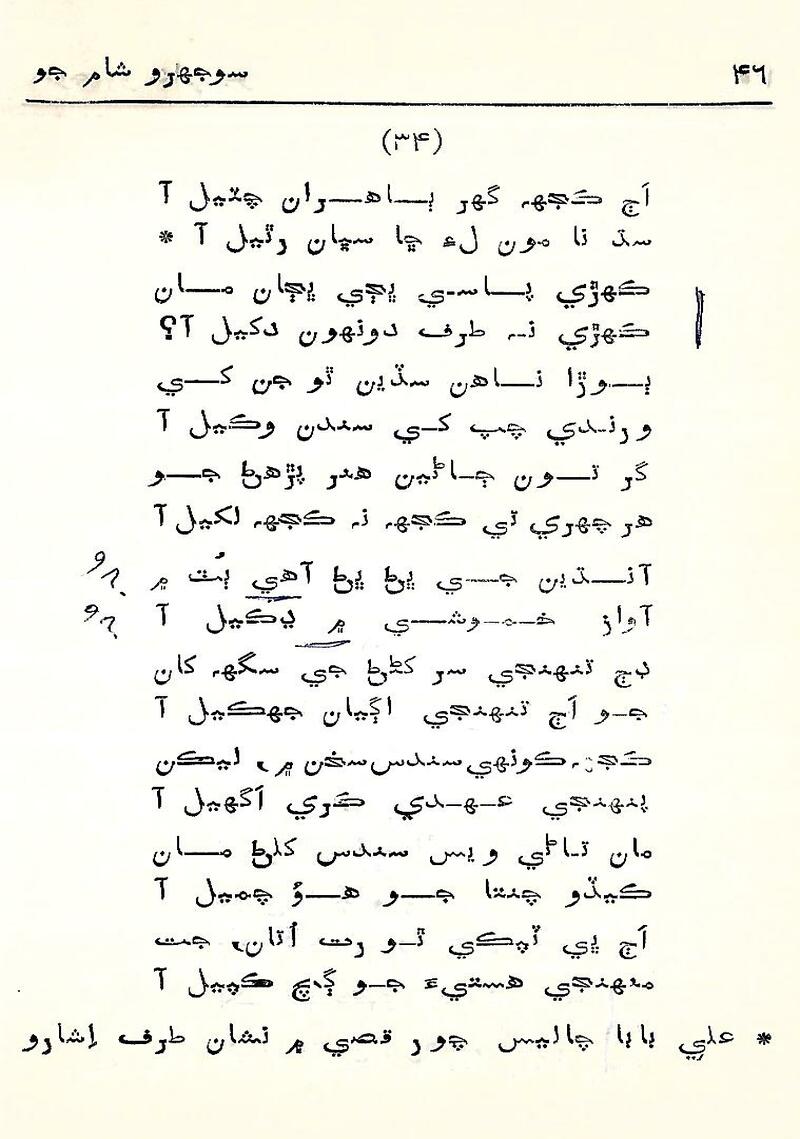 ۴٦ سوجھرو شام جو
(۳۴)
اَڄ ڪجھہ گھر ٻاهران چٽيل آ
سڌ نا مون لءِ ڇا سڀان رٿيل آ *
ڪهڙي پاسي ڀڄي ڀڄان مان
ڪهڙي نہ طرف دونهون دکيل آ؟
ٻوڙا ناهن سڏين ٿو جن کي
ورندي چپ کي سندن وڪيل آ
گر تون ڄاڻين هنر پڙهڻ جو
هر چهري تي ڪجھہ نہ ڪجھہ لکيل آ
آنڌين جي ڀڻ ڀڻ آهي ٻُٽ ۾
آواز خموشي ۾ ڍڪيل آ
ڊڄ تنهنجي سر کڻڻ جي سگھہ کان
جو اَڄ تنهنجي اڳيان جھڪيل آ
ڪجھہ ڪونهي سندس سخن ۾، ليڪن
پنهنجي عهدي ڪري اَگھيل آ
مان تاڻي ويس سندس کلڻ مان
ڪيڏو چنتا جو هوُ چميل آ
اَڄ ڀي ٽپڪي ٿو رت اُتان، جت
منهنجي هستيءَ جو ڳچ ڪپيل آ
* علي بابا چاليس چور قصي ۾ نشان طرف اِشارو